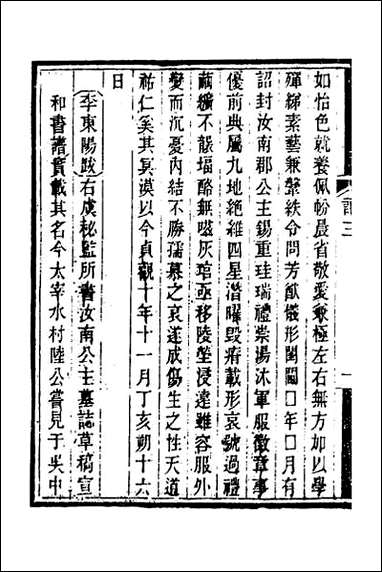 如怡色就養佩帉晨省敬愛兼極左右無方加以學
殫綈素藝兼鞶紩令問芳猷儀形閨閫□年□月有
詔封汝南郡公主錫重珪瑞禮崇湯沐車服徽章事
優前典屬九地絶維四星潛曜毀瘠載形哀號過禮
繭纊不襲塩酪無嗞灰琯亟移陵塋浸遠雖容服外
變而沉憂内結不勝孺慕之哀遂成傷生之性天道
祐仁奚其冥漠以今貞觀十年十一月丁亥朔十六
日
李東陽跋右虞秘監所書汝南公主墓誌草稿宣
和書譜實載其名今太宰水村陸公嘗見于吳中